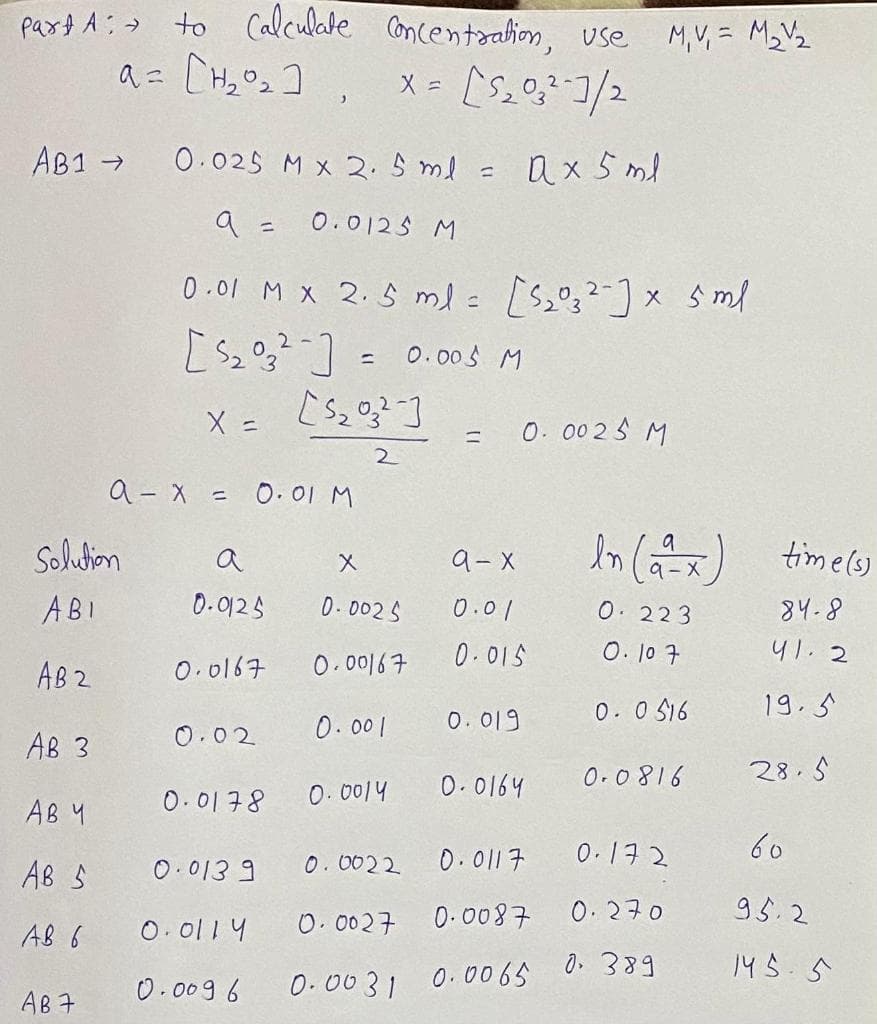 Part A :→ to Calculate Concentration, use M₁V₁ = M₂V₂
a = [H₂O₂] , x = [S₂O₃²⁻]/2
AB1 → 0.025 M x 2.5 ml = a x 5 ml
a = 0.0125 M
0.01 M x 2.5 ml = [S₂O₃²⁻] x 5 ml
[S₂O₃²⁻] = 0.005 M
x = [S₂O₃²⁻]/2 = 0.0025 M
a - x = 0.01 M
Solution a x a-x ln(a/a-x) time(s)
AB1 0.0125 0.0025 0.01 0.223 84.8
AB2 0.0167 0.00167 0.015 0.107 41.2
AB 3 0.02 0.001 0.019 0.0516 19.5
AB 4 0.0178 0.0014 0.0164 0.0816 28.5
AB 5 0.0139 0.0022 0.0117 0.172 60
AB 6 0.0114 0.0027 0.0087 0.270 95.2
AB 7 0.0096 0.0031 0.0065 0.389 145.5